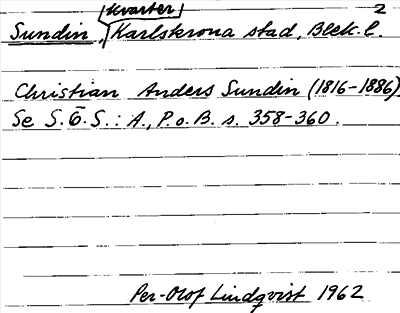 kvarter 2
Sundin, Karlskrona stad, Blek. l.
Christian Anders Sundin (1816-1886)
Se S.Ö.S.: A., P.o.B. s. 358-360.
Per-Olof Lindqvist 1962